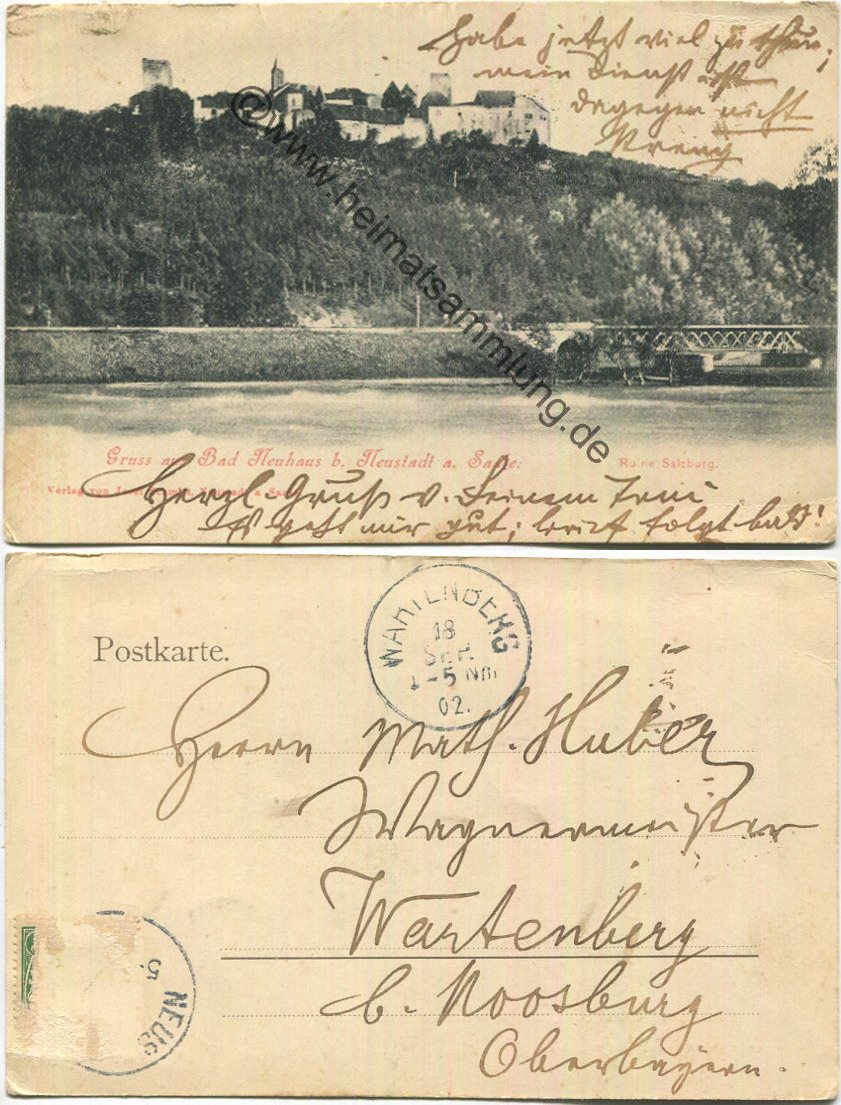 habe jetzt viel zu thun;
mein Dienst ist
dagegen nicht
streng
@www.heimatsammlung.de
Gruss aus Bad Neuhaus b. Neustadt a. Saale:
Ruine Salzburg.
Verlag von
Herzl. Gruß v. Deinem Toni
Es geht mir gut; brief folgt bald!
WARTENBERG
18
SEP.
4-5 Nm.
02.
Postkarte.
Herrn Math. Huber
Wagnermeister
Wartenberg
b. Moosburg
Oberbayern.
NEUS